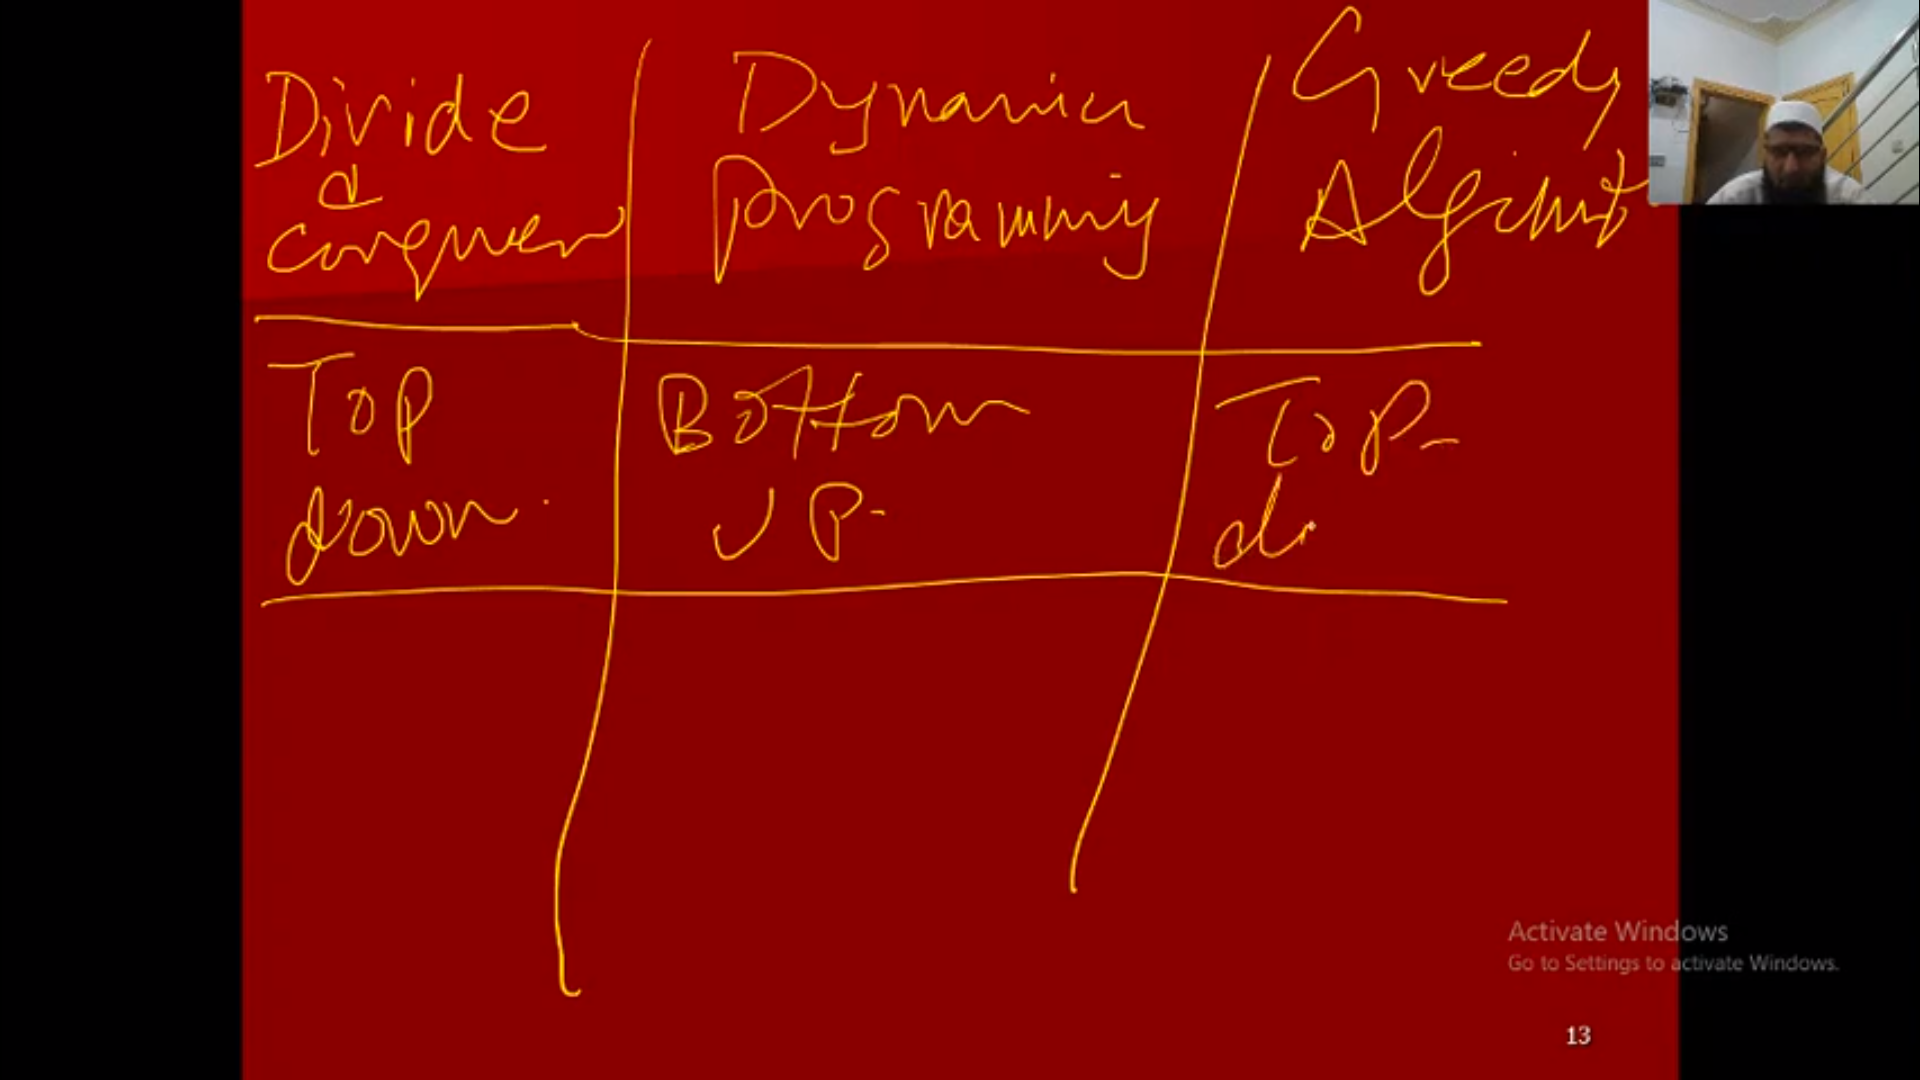 Divide
&
Conquer
Dynamic
Programming
Greedy
Top
down.
Bottom
UP-
Top-
do
Activate Windows
Go to Settings to activate Windows.
13